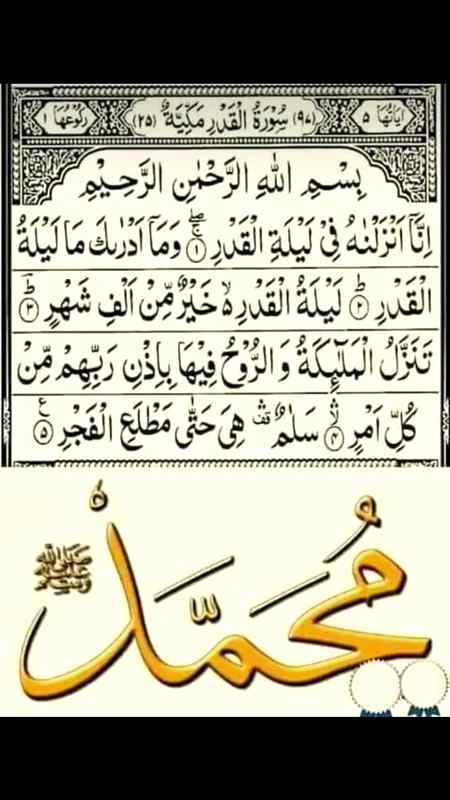 اٰيَاتُهَا ٥ (٩٧) سُوْرَةُ الْقَدْرِ مَكِّيَّةٌ (٢٥) رُكُوْعُهَا ١
بِسْمِ اللّٰهِ الرَّحْمٰنِ الرَّحِيْمِ
اِنَّاۤ اَنْزَلْنٰهُ فِيْ لَيْلَةِ الْقَدْرِ ۚۖ ١ وَمَاۤ اَدْرٰىكَ مَا لَيْلَةُ
الْقَدْرِ ؕ ٢ لَيْلَةُ الْقَدْرِ ۙ خَيْرٌ مِّنْ اَلْفِ شَهْرٍ ؕؔ ٣
تَنَزَّلُ الْمَلٰٓئِكَةُ وَ الرُّوْحُ فِيْهَا بِاِذْنِ رَبِّهِمْ مِّنْ
كُلِّ اَمْرٍ ۛ ٤ سَلٰمٌ ۛ قف هِيَ حَتّٰى مَطْلَعِ الْفَجْرِ ٥ ع
مُحَمَّد
صلى الله
عليه
وسلم